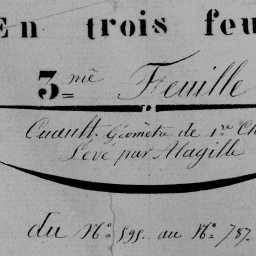 En trois feu
3=me Feuille
Ouault. Géomètre de 1re Cl
Levé par Magille
du N° 595. au N° 787.